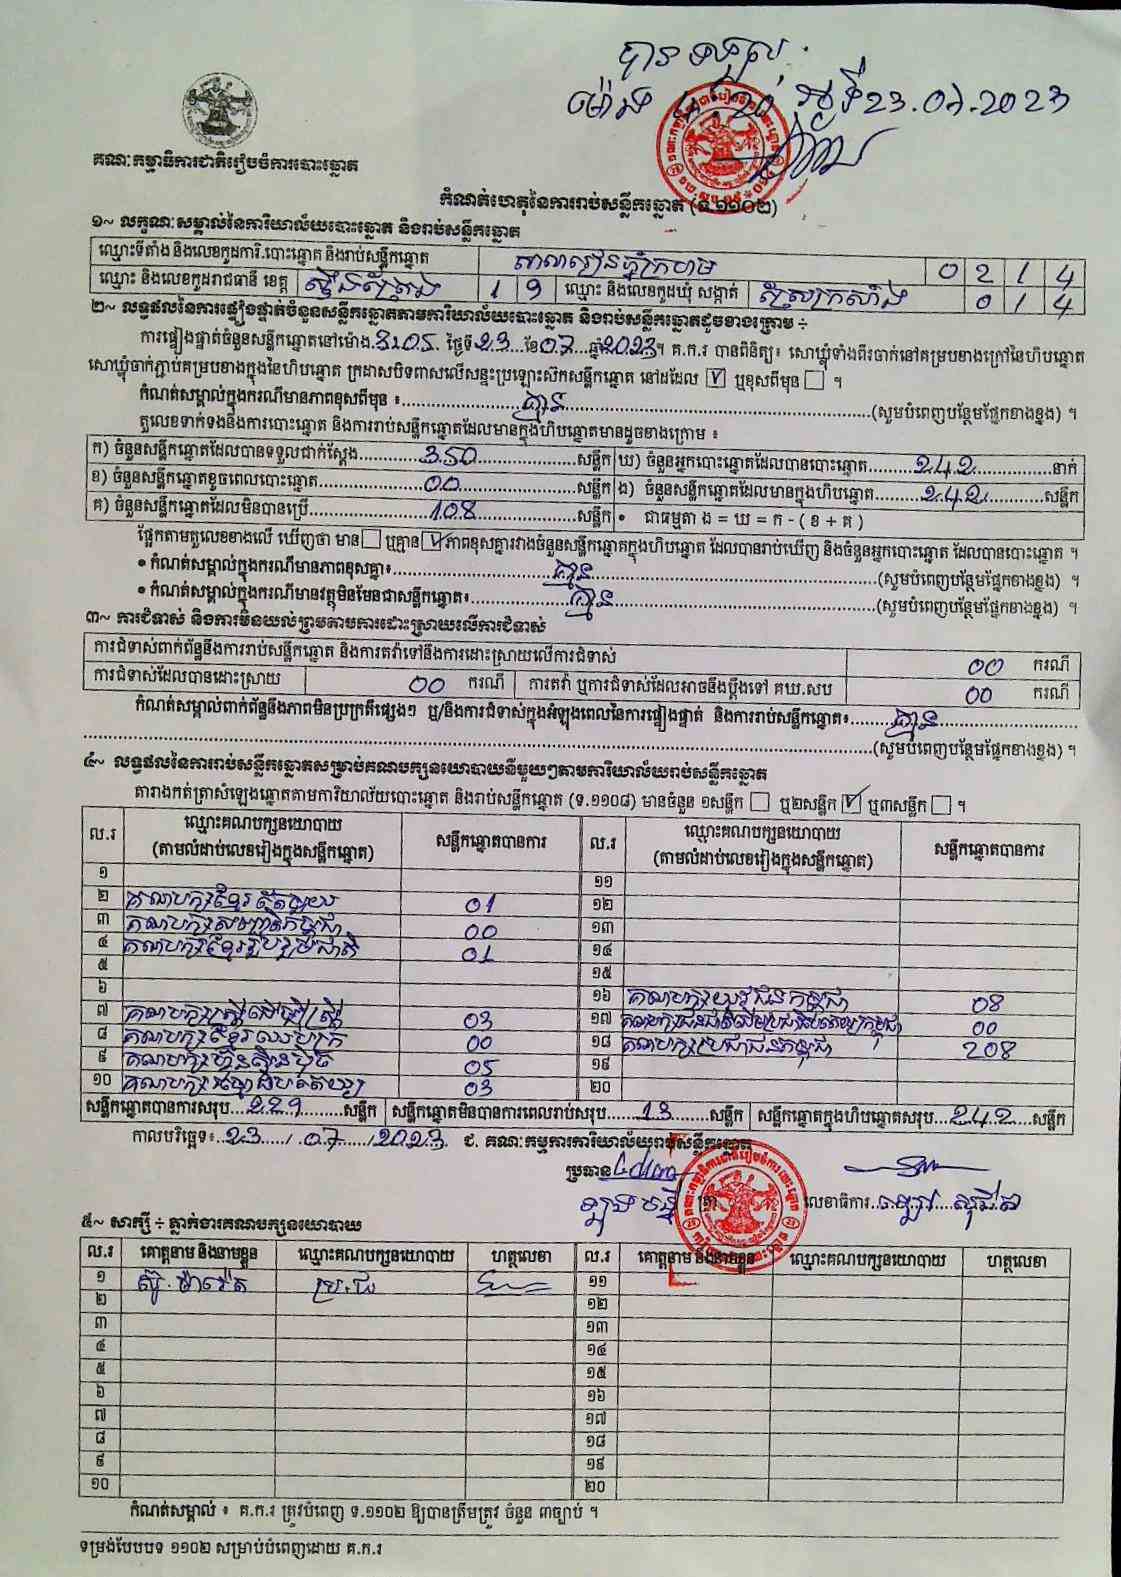 បានទទួល
ម៉ោង 4:20 ថ្ងៃទី 23.07.2023
គណៈកម្មាធិការជាតិរៀបចំការបោះឆ្នោត
កំណត់ហេតុនៃការរាប់សន្លឹកឆ្នោត (ទ.១១០២)
១~ លក្ខណៈសម្គាល់នៃការិយាល័យបោះឆ្នោត និងរាប់សន្លឹកឆ្នោត
ឈ្មោះទីតាំង និងលេខកូដការិ.បោះឆ្នោត និងរាប់សន្លឹកឆ្នោត 0 2 1 4
ឈ្មោះ និងលេខកូដរាជធានី ខេត្ត ស្ទឹងត្រែង 1 9 ឈ្មោះ និងលេខកូដឃុំ សង្កាត់ 0 1 4
២~ លទ្ធផលនៃការផ្ទៀងផ្ទាត់ចំនួនសន្លឹកឆ្នោតតាមការិយាល័យបោះឆ្នោត និងរាប់សន្លឹកឆ្នោតដូចខាងក្រោម ÷
ការផ្ទៀងផ្ទាត់ចំនួនសន្លឹកឆ្នោតនៅម៉ោង.3:05. ថ្ងៃទី.23...ខែ07...ឆ្នាំ2023។ គ.ក.រ បានពិនិត្យ៖ សោឃ្លុំទាំងពីរចាក់នៅគម្របខាងក្រៅនៃហិបឆ្នោត
សោឃ្លុំចាក់ភ្ជាប់គម្របខាងក្នុងនៃហិបឆ្នោត ក្រដាសបិទពាសលើសន្ទះប្រឡោះស៊កសន្លឹកឆ្នោត នៅដដែល ☑ ឬខុសពីមុន ☐ ។
កំណត់សម្គាល់ក្នុងករណីមានភាពខុសពីមុន ៖ គ្មាន (សូមបំពេញបន្ថែមផ្នែកខាងខ្នង) ។
តួលេខទាក់ទងនឹងការបោះឆ្នោត និងការរាប់សន្លឹកឆ្នោតដែលមានក្នុងហិបឆ្នោតមានដូចខាងក្រោម ៖
ក) ចំនួនសន្លឹកឆ្នោតដែលបានទទួលជាក់ស្តែង 350 សន្លឹក ឃ) ចំនួនអ្នកបោះឆ្នោតដែលបានបោះឆ្នោត 242 នាក់
ខ) ចំនួនសន្លឹកឆ្នោតខូចពេលបោះឆ្នោត 00 សន្លឹក ង) ចំនួនសន្លឹកឆ្នោតដែលមានក្នុងហិបឆ្នោត 242 សន្លឹក
គ) ចំនួនសន្លឹកឆ្នោតដែលមិនបានប្រើ 108 សន្លឹក • ជាធម្មតា ង = ឃ = ក - ( ខ + គ )
ផ្អែកតាមតួលេខខាងលើ ឃើញថា មាន ☐ ឬគ្មាន ☑ ភាពខុសគ្នារវាងចំនួនសន្លឹកឆ្នោតក្នុងហិបឆ្នោត ដែលបានរាប់ឃើញ និងចំនួនអ្នកបោះឆ្នោត ដែលបានបោះឆ្នោត ។
• កំណត់សម្គាល់ក្នុងករណីមានភាពខុសគ្នា៖ គ្មាន (សូមបំពេញបន្ថែមផ្នែកខាងខ្នង) ។
• កំណត់សម្គាល់ក្នុងករណីមានវត្ថុមិនមែនជាសន្លឹកឆ្នោត៖ គ្មាន (សូមបំពេញបន្ថែមផ្នែកខាងខ្នង) ។
៣~ ការជំទាស់ និងការមិនយល់ព្រមតាមការដោះស្រាយលើការជំទាស់
ការជំទាស់ពាក់ព័ន្ធនឹងការរាប់សន្លឹកឆ្នោត និងការតវ៉ាទៅនឹងការដោះស្រាយលើការជំទាស់ 00 ករណី
ការជំទាស់ដែលបានដោះស្រាយ 00 ករណី ការតវ៉ា ឬការជំទាស់ដែលអាចនឹងប្តឹងទៅ គឃ.សប 00 ករណី
កំណត់សម្គាល់ពាក់ព័ន្ធនឹងភាពមិនប្រក្រតីផ្សេងៗ ឬ/និងការជំទាស់ក្នុងអំឡុងពេលនៃការផ្ទៀងផ្ទាត់ និងការរាប់សន្លឹកឆ្នោត៖ គ្មាន
(សូមបំពេញបន្ថែមផ្នែកខាងខ្នង) ។
៤~ លទ្ធផលនៃការរាប់សន្លឹកឆ្នោតសម្រាប់គណបក្សនយោបាយនីមួយៗតាមការិយាល័យរាប់សន្លឹកឆ្នោត
តារាងកត់ត្រាសំឡេងឆ្នោតតាមការិយាល័យបោះឆ្នោត និងរាប់សន្លឹកឆ្នោត (ទ.១១០៨) មានចំនួន ១សន្លឹក ☐ ឬ២សន្លឹក ☑ ឬ៣សន្លឹក ☐ ។
ល.រ ឈ្មោះគណបក្សនយោបាយ (តាមលំដាប់លេខរៀងក្នុងសន្លឹកឆ្នោត) សន្លឹកឆ្នោតបានការ ល.រ ឈ្មោះគណបក្សនយោបាយ (តាមលំដាប់លេខរៀងក្នុងសន្លឹកឆ្នោត) សន្លឹកឆ្នោតបានការ
១ ១១
២ 01 ១២
៣ គណបក្សសញ្ជាតិកម្ពុជា 00 ១៣
៤ គណបក្សខ្មែររួបរួមជាតិ 01 ១៤
៥ ១៥
៦ ១៦ គណបក្សយុវជនកម្ពុជា 08
៧ គណបក្សស្ត្រីដើម្បីស្ត្រី 03 ១៧ 00
៨ 00 ១៨ គណបក្សប្រជាជនកម្ពុជា 208
៩ គណបក្សហ្វ៊ុនស៊ិនប៉ិច 05 ១៩
១០ គណបក្សធម្មាធិបតេយ្យ 03 ២០
សន្លឹកឆ្នោតបានការសរុប 229 សន្លឹក សន្លឹកឆ្នោតមិនបានការពេលរាប់សរុប 13 សន្លឹក សន្លឹកឆ្នោតក្នុងហិបឆ្នោតសរុប 242 សន្លឹក
កាលបរិច្ឆេទ៖ 23 / 07 / 2023 ជ. គណៈកម្មការការិយាល័យរាប់សន្លឹកឆ្នោត
ប្រធាន
ត្រា លេខាធិការ
៥~ សាក្សី ÷ ភ្នាក់ងារគណបក្សនយោបាយ
ល.រ គោត្តនាម និងនាមខ្លួន ឈ្មោះគណបក្សនយោបាយ ហត្ថលេខា ល.រ គោត្តនាម និងនាមខ្លួន ឈ្មោះគណបក្សនយោបាយ ហត្ថលេខា
១ ប្រ.ជ ១១
២ ១២
៣ ១៣
៤ ១៤
៥ ១៥
៦ ១៦
៧ ១៧
៨ ១៨
៩ ១៩
១០ ២០
កំណត់សម្គាល់ ៖ គ.ក.រ ត្រូវបំពេញ ទ.១១០២ ឱ្យបានត្រឹមត្រូវ ចំនួន ៣ច្បាប់ ។
ទម្រង់បែបបទ ១១០២ សម្រាប់បំពេញដោយ គ.ក.រ